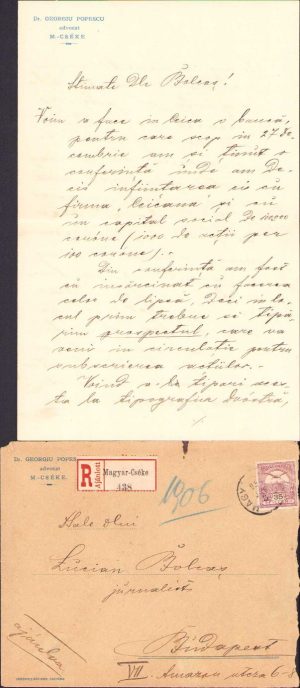 Dr. GEORGIU POPESCU
advocat
M.-CSÉKE.
Stimate Dle Bolcaș!
Voim a face in Ceica o bancă,
pentru care scop in 27 De-
cembrie am si ținut o
conferintă unde am De-
cis infiintarea ei cu
firma „Ceicana" și cu
un capital social De
corone / 1000 de acții per
100 corone /.
Din conferintă am fost
cu insărcinat cu facerea
celor de lipsă, Deci in lo-
cul prim trebue se tipă-
rim prospectul, care va
veni in circulatie pentru
subscrierea actiilor.
Voind a-la tipari aces-
ta la tipografia Dvostră,
Dr. GEORGIU POPES
advocat
M.-CSÉKE.
R
Ajánlott
Magyar-Cséke
438
1906
35
Lucian Bolcaș
jurnalist
Budapest
VII. Amazon utcza 6-8
ajánlva